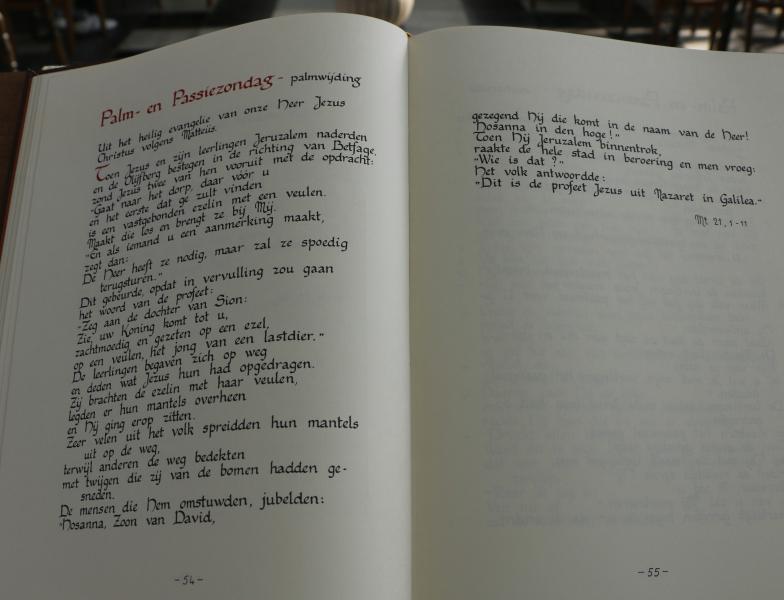 Palm- en Passiezondag - palmwijding
Uit het heilig evangelie van onze Heer Jezus
Christus volgens Matteüs.
Toen Jezus en zijn leerlingen Jeruzalem naderden
en de Olijfberg bestegen in de richting van Betfage,
zond Jezus twee van hen vooruit met de opdracht:
"Gaat naar het dorp, daar vóór u
en het eerste dat ge zult vinden
is een vastgebonden ezelin met een veulen.
Maakt die los en brengt ze bij Mij.
"En als iemand u een aanmerking maakt,
zegt dan:
De Heer heeft ze nodig, maar zal ze spoedig
terugsturen."
Dit gebeurde, opdat in vervulling zou gaan
het woord van de profeet:
"Zeg aan de dochter van Sion:
Zie, uw Koning komt tot u,
zachtmoedig en gezeten op een ezel,
op een veulen, het jong van een lastdier."
De leerlingen begaven zich op weg
en deden wat Jezus hun had opgedragen.
Zij brachten de ezelin met haar veulen,
legden er hun mantels overheen
en Hij ging erop zitten.
Zeer velen uit het volk spreidden hun mantels
uit op de weg,
terwijl anderen de weg bedekten
met twijgen die zij van de bomen hadden ge-
sneden.
De mensen die Hem omstuwden, jubelden:
"Hosanna, Zoon van David,
- 54 -
gezegend Hij die komt in de naam van de Heer!
Hosanna in den hoge!"
Toen Hij Jeruzalem binnentrok,
raakte de hele stad in beroering en men vroeg:
"Wie is dat?"
Het volk antwoordde:
"Dit is de profeet Jezus uit Nazaret in Galilea."
Mt. 21, 1-11
- 55 -